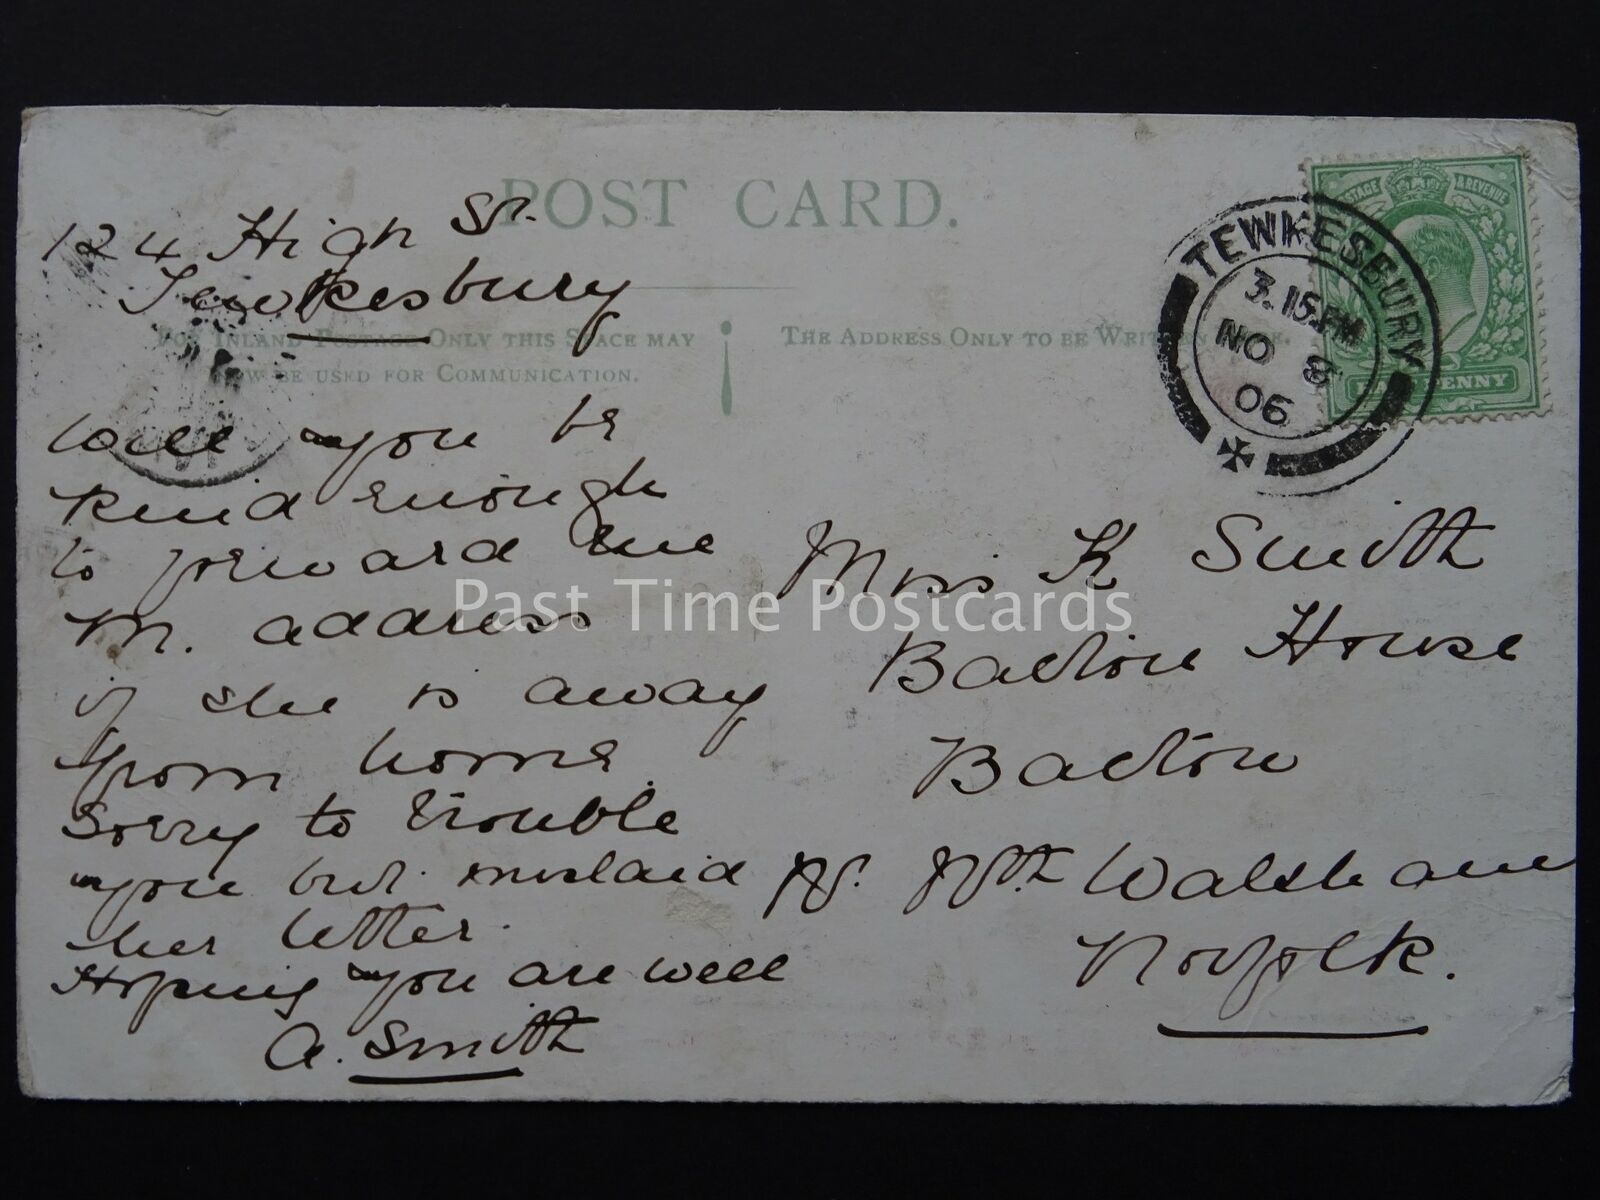 POST CARD.
124 High St.
Tewkesbury
FOR INLAND POSTAGE ONLY THIS SPACE MAY
NOW BE USED FOR COMMUNICATION.
THE ADDRESS ONLY TO BE WRITTEN HERE.
TEWKESBURY
3.15.PM
NO 8
06
POSTAGE & REVENUE
HALFPENNY
Will you be
kind enough
to forward me
M. address
if she is away
from home.
Sorry to trouble
you but mislaid
her letter.
Hoping you are well
A. Smith
Miss K Smith
Bacton House
Bacton
Nr. Nth Walsham
Norfolk.
Past Time Postcards